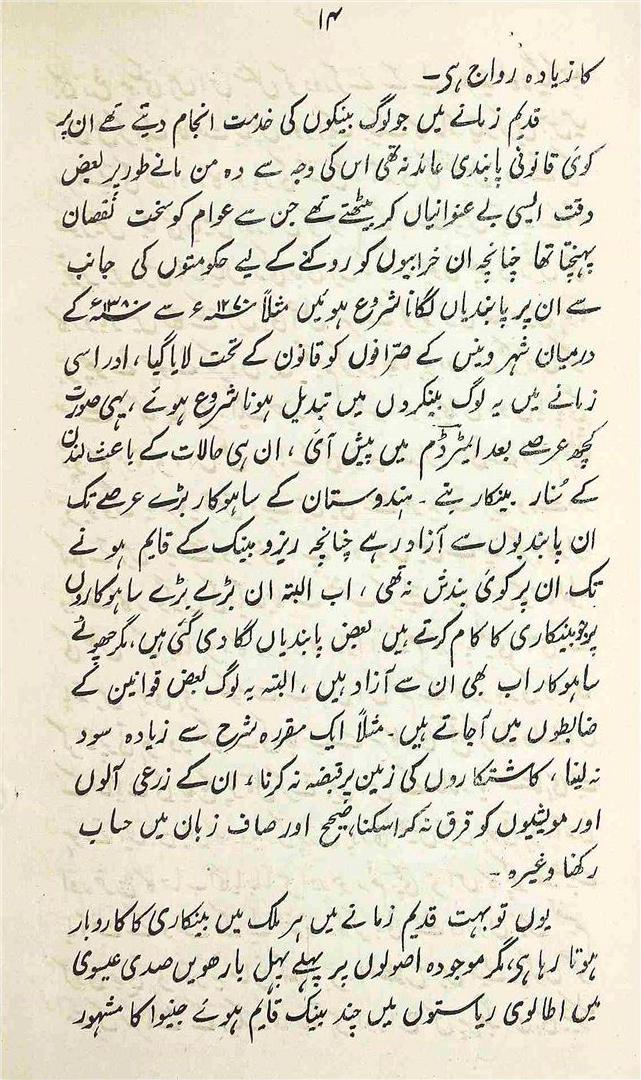 ۱۴
کا زیادہ رواج ہی۔
قدیم زمانے میں جو لوگ بینکوں کی خدمت انجام دیتے تھے ان پر
کوئی قانونی پابندی عائد نہ تھی اس کی وجہ سے وہ من مانے طور پر بعض
وقت ایسی بے عنوانیاں کر بیٹھتے تھے جن سے عوام کو سخت نقصان
پہنچتا تھا چنانچہ ان خرابیوں کو روکنے کے لیے حکومتوں کی جانب
سے ان پر پابندیاں لگانا شروع ہوئیں مثلاً ۱۲۷۰ء سے ۱۳۸۰ء کے
درمیان شہر وینس کے صرّافوں کو قانون کے تحت لایا گیا، اور اسی
زمانے میں یہ لوگ بینکروں میں تبدیل ہونا شروع ہوئے، یہی صورت
کچھ عرصے بعد ایمسٹرڈم میں پیش آئی، ان ہی حالات کے باعث لندن
کے سُنار بینکار بنے۔ ہندوستان کے ساہوکار بڑے عرصے تک
ان پابندیوں سے آزاد رہے چنانچہ ریزو بینک کے قایم ہونے
تک ان پر کوئی بندش نہ تھی، اب البتہ ان بڑے بڑے ساہوکاروں
پر جو بینکاری کا کام کرتے ہیں بعض پابندیاں لگا دی گئی ہیں، مگر چھوٹے
ساہوکار اب بھی ان سے آزاد ہیں، البتہ یہ لوگ بعض قوانین کے
ضابطوں میں آجاتے ہیں۔ مثلاً ایک مقررہ شرح سے زیادہ سود
نہ لینا، کاشتکاروں کی زمین پر قبضہ نہ کرنا، ان کے زرعی آلوں
اور مویشیوں کو قرق نہ کراسکنا، صحیح اور صاف زبان میں حساب
رکھنا وغیرہ۔
یوں تو بہت قدیم زمانے میں ہر ملک میں بینکاری کا کاروبار
ہوتا رہا ہی، مگر موجودہ اصولوں پر پہلے پہل بارھویں صدی عیسوی
میں اطالوی ریاستوں میں چند بینک قایم ہوئے جنیوا کا مشہور